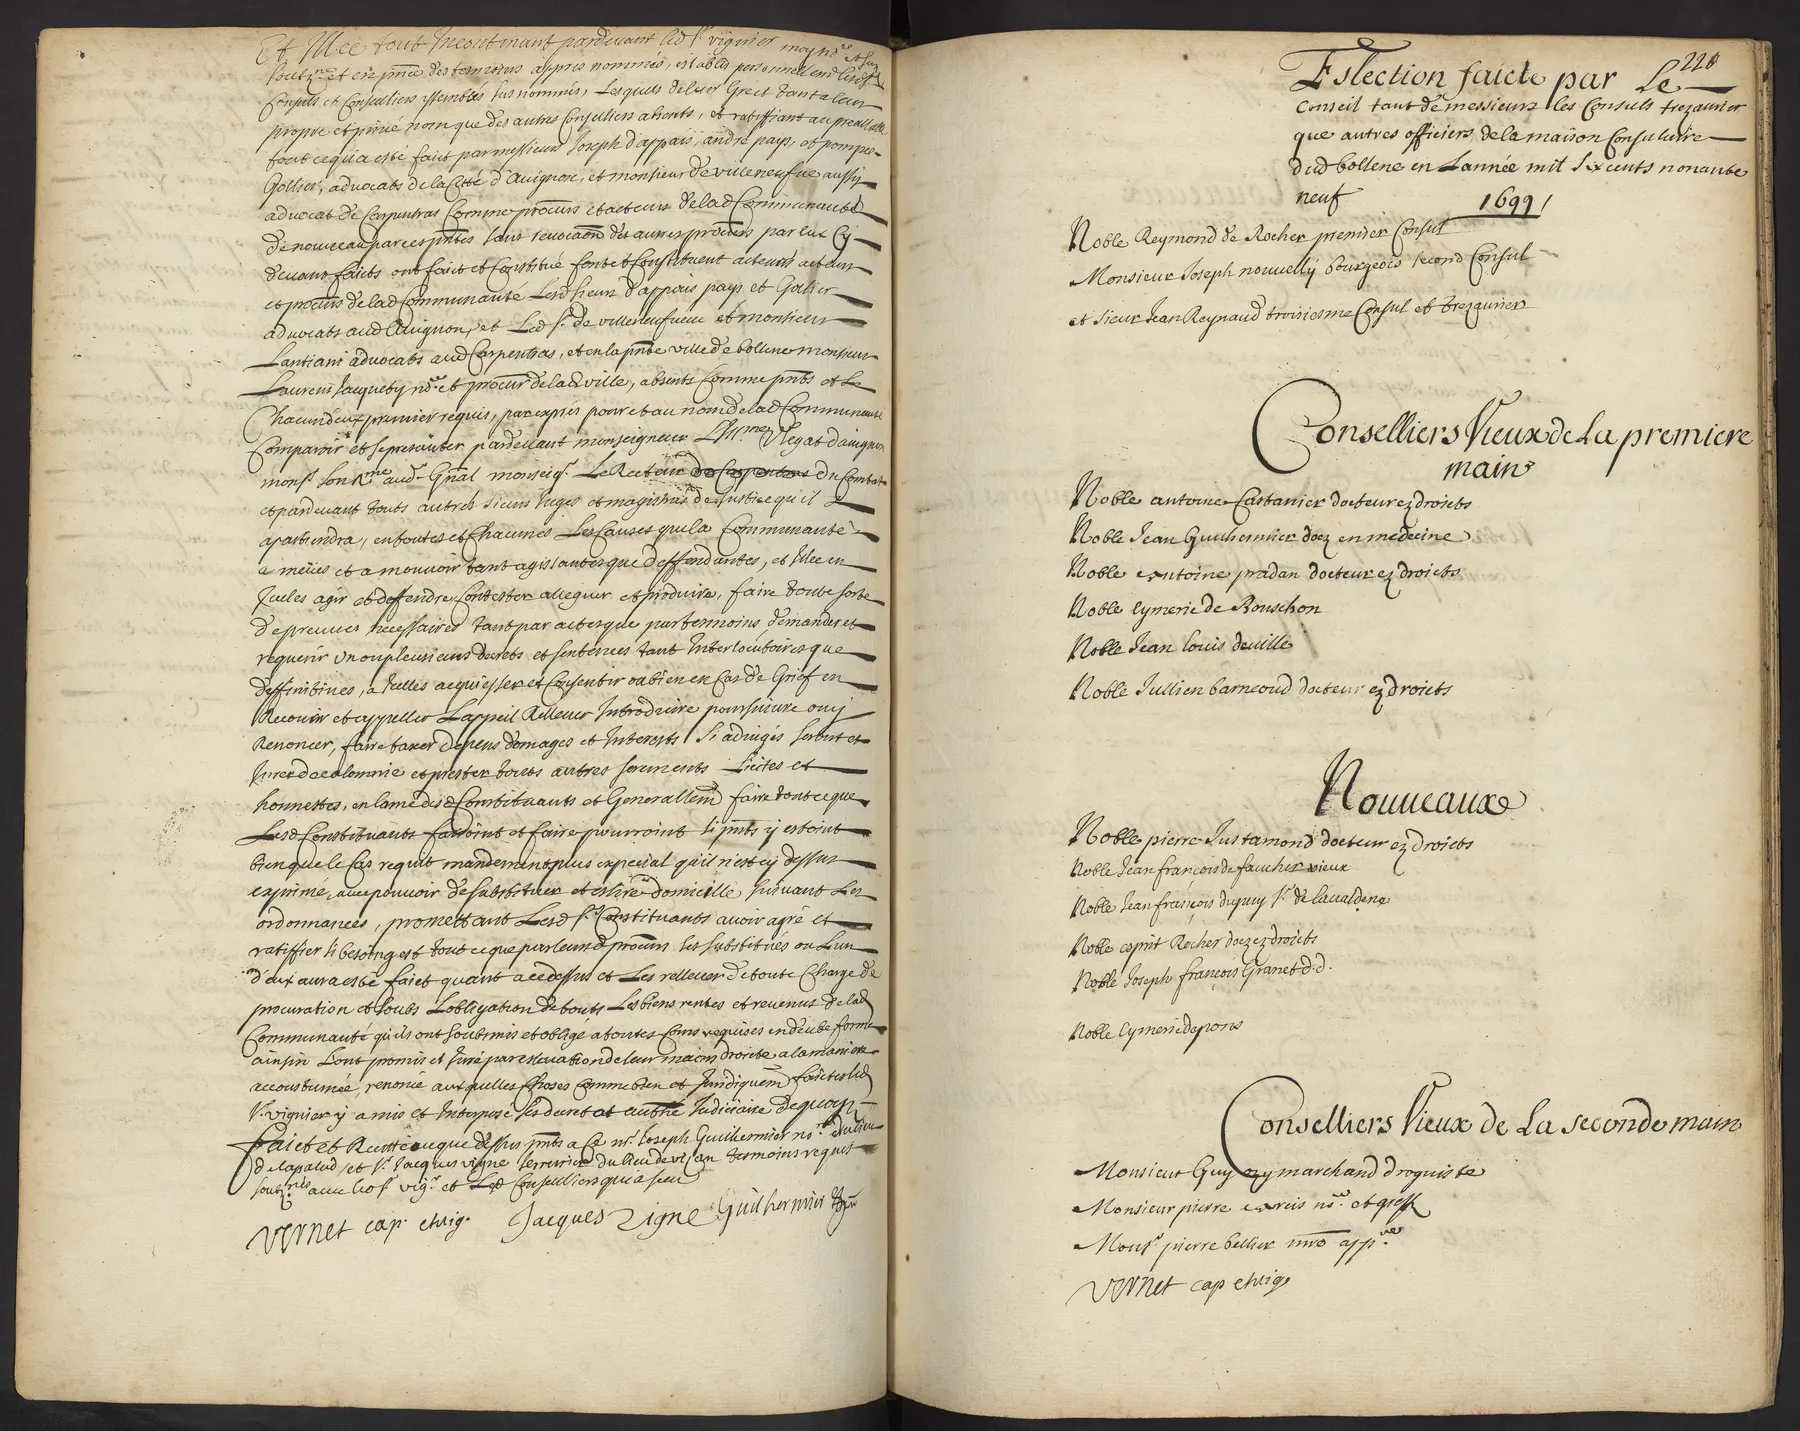 Et Illec tout Incontinant pardevant led sr. vignier moy nore. et secr.
soubzne. et en pnce des tesmoins appres nommés, establis personnellemt. lesd srs
Consuls et Conseilliers assemblés sus nommés, Lesquels de leur Gre et tant a leur
propre et privé nom que des autres Conseilliers absents, et ratiffiant au prealable
tout ce qui a esté faict par messieurs Joseph d'appais, andré pays, et pompee
Gollier, advocats de la Cité d'Avignon, et monsieur de villeneufve aussy
advocat de Carpentras Comme procurs et acteurs de lad Communauté
de nouveau par ces pntes sans revocaōn des autres procurs par eux Cy
devant faicts ont faict et Constitué font et Constituent acteurs acteurs
et procurs de lad Communauté Lesd sieurs d'appais pays et Gollier
advocats aud Avignon, et Led sr. de villeneufveue et monsieur
Lantiani advocats aud Carpentras, et en la pnte ville de bollene monsieur
Laurens Jacquety nore. et procur de lad ville, absents Comme pnts et Le
Chacun d'eux premier requis, par exprés pour et au nom de lad Communauté
Comparoir et se presenter pardevant monseigneur L'Illme. Vlegat d'avignon
monsr. son Rme. audr. Gnal monseigr. Le Recteur de Carpentras du Contat
et pardevant touts autres sieurs Juges et magistrats de Justice qu'il
apartiendra, en toutes et Chacunes Les Causes que la Communauté
a meües et a mouvoir tant agissantes que deffendantes, et Illec en
Icelles agir et deffendre, Contester alleguer et produire, faire toute sorte
de preuves necessaires tant par actes que par tesmoins, demander et
requerir un ou plusieurs decrets et sentences tant Interlocutoires que
deffinitives, a Icelles acquiesser et Consentir ou bien en Cas de Grief en
Recourir et appeller L'appeil Rellever Introduire poursuivre ou y
Renoncer, faire taxer depens domages et Interests Si adiugés seront et
Jurer de calomnie et prester touts autres serments Licites et
honnestes, en l'ame desd Constituants et Generallemt faire tout ce que
Lesd Constituants faroint et faire pourroint si pnts y estoint
bien que le Cas requit mandement plus expecial qu'il n'est cy dessus
exprimé, avec pouvoir de substituer et eslire domicille suivant Les
ordonnances, promettant Lesd srs. Constituants avoir agré et
ratiffier si besoing est tout ce que par leursd procurs les substitués ou L'un
d'eux aura esté faict quant a ce dessus et Les rellever de toute Charge de
procuration et soubs L'obligation de touts Les biens rentes et revenus de lad
Communauté qu'ils ont soubmis et obligé a toutes Cours requises en deube forme
ainsin L'ont promis et Juré par eslevation de leur main droicte a la maniere
accoustumée, renoncé aux quelles Choses Comme bien et Juridiquemt faictes led
sr. vignier y a mis et Interposé ses decret et authte Judiciaire de quoy
faict et Recitté auque dessus pnts a Ce mr. Joseph Guilhermier nore. du lieu
de lapalud, et sr. Jacques vigne serrurier du lieu de visan tesmoins requis
soubznés avec led sr. vigr. et Lesd Conseilliers qui a sceu
Vernet cap. et vig. Jacques Vigne Guilhermier
220
Eslection faicte par Le
Conseil tant de messieurs les Consuls trezaurier
que autres officiers de la maison Consulaire
dud bollene en L'année mil six cents nonante
neuf 1699
Noble Reymond de Rocher premier Consul
Monsieur Joseph nouvelly bourgeois second Consul
et sieur Jean Reynaud troisiesme Consul et trezaurier
Conselliers Vieux de La premiere
main
Noble antoine Castanier docteur ez droicts
Noble Jean Guilhermier docr en medecine
Noble antoine pradan docteur ez droicts
Noble Eymeric de Rouschon
Noble Jean louis deville
Noble Jullien barneoud docteur ez droicts
Nouveaux
Noble pierre Justamond docteur ez droicts
Noble Jean françois de faucher vieux
Noble Jean françois dupuy sr. de lavaldene
Noble esprit Rocher docr ez droicts
Noble Joseph françois Granet d. d.
Noble Eymeric de pons
Conselliers Vieux de La seconde main
Monsieur Guy ezy marchand droguiste
Monsieur pierre corvis nore. et greff
Monsr. pierre bellier mro appre.
Vernet cap et vig.